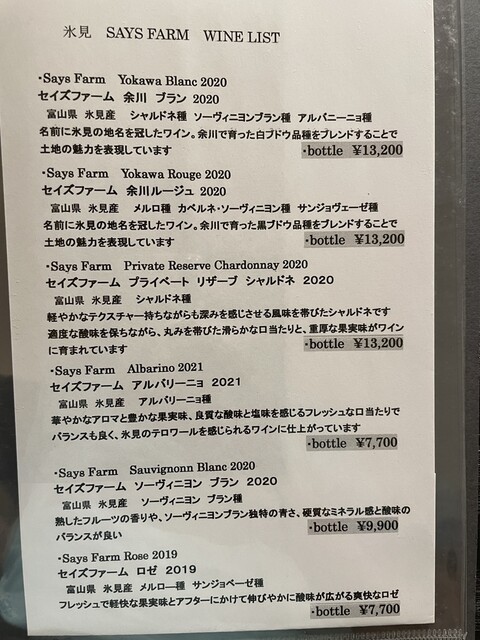 氷見 SAYS FARM WINE LIST
・Says Farm Yokawa Blanc 2020
セイズファーム 余川 ブラン 2020
富山県 氷見産 シャルドネ種 ソーヴィニヨンブラン種 アルバニーニョ種
名前に氷見の地名を冠したワイン。余川で育った白ブドウ品種をブレンドすることで
土地の魅力を表現しています ・bottle ¥13,200
・Says Farm Yokawa Rouge 2020
セイズファーム 余川ルージュ 2020
富山県 氷見産 メルロ種 カベルネ・ソーヴィニヨン種 サンジョヴェーゼ種
名前に氷見の地名を冠したワイン。余川で育った黒ブドウ品種をブレンドすることで
土地の魅力を表現しています ・bottle ¥13,200
・Says Farm Private Reserve Chardonnay 2020
セイズファーム プライベート リザーブ シャルドネ 2020
富山県 氷見産 シャルドネ種
軽やかなテクスチャー持ちながらも深みを感じさせる風味を帯びたシャルドネです
適度な酸味を保ちながら、丸みを帯びた滑らかな口当たりと、重厚な果実味がワイン
に育まれています ・bottle ¥13,200
・Says Farm Albarino 2021
セイズファーム アルバリーニョ 2021
富山県 氷見産 アルバリーニョ種
華やかなアロマと豊かな果実味、良質な酸味と塩味を感じるフレッシュな口当たりで
バランスも良く、氷見のテロワールを感じられるワインに仕上がっています
・bottle ¥7,700
・Says Farm Sauvignonn Blanc 2020
セイズファーム ソーヴィニヨン ブラン 2020
富山県 氷見産 ソーヴィニヨン ブラン種
熟したフルーツの香りや、ソーヴィニヨンブラン独特の青さ、硬質なミネラル感と酸味の
バランスが良い ・bottle ¥9,900
・Says Farm Rose 2019
セイズファーム ロゼ 2019
富山県 氷見産 メルロー種 サンジョベーゼ種
フレッシュで軽快な果実味とアフターにかけて伸びやかに酸味が広がる爽快なロゼ
・bottle ¥7,700